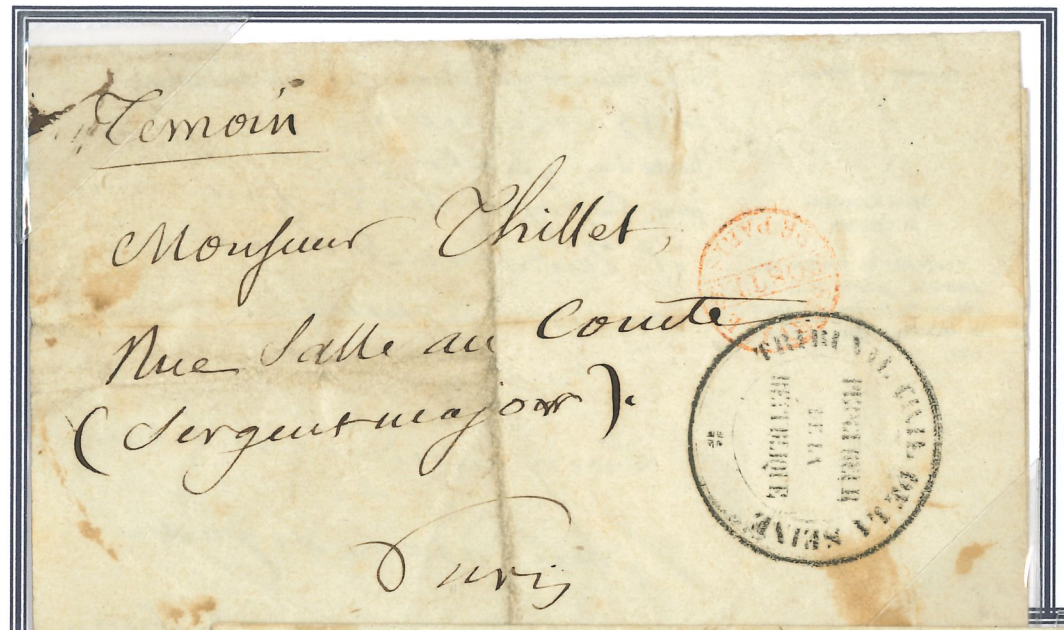 Temoin
Monsieur Thillet,
Rue Salle au Comte
(Sergent major).
Paris
TRIBUNAL CIVIL DE LA SEINE
PROCUREUR
DE LA
RÉPUBLIQUE